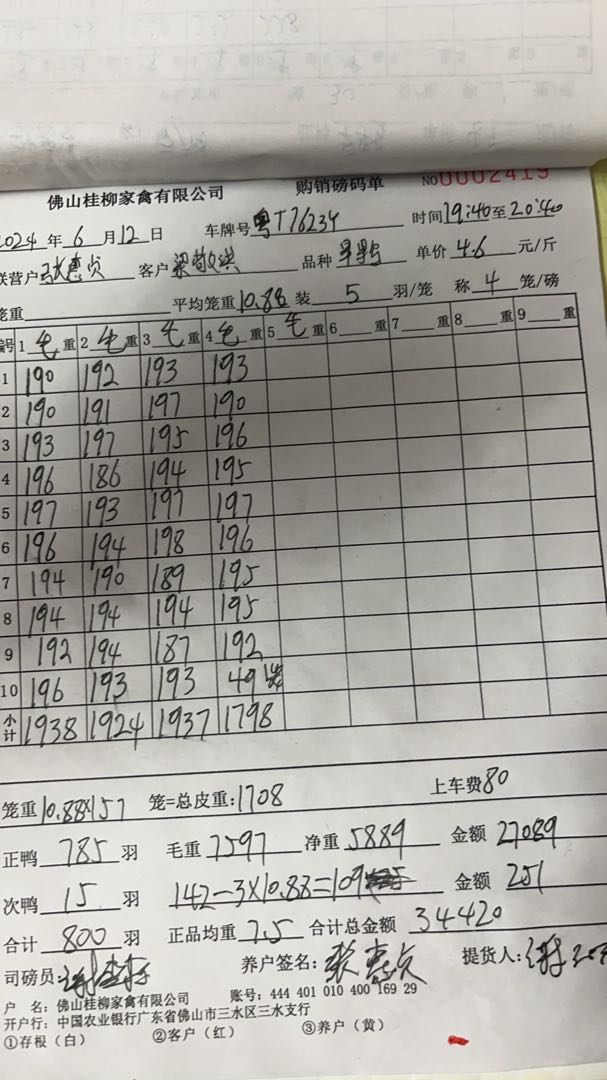 佛山桂柳家禽有限公司 购销磅码单 NO0002419
2024年6月12日 车牌号粤T76234 时间19:40至20:40
联营户张惠贞 客户 品种 单价4.6元/斤
笼重 平均笼重10.88装5羽/笼 称4笼/磅
编号 1毛重 2毛重 3毛重 4毛重 5毛重 6重 7重 8重 9重
1 190 192 193 193
2 190 191 197 190
3 193 197 195 196
4 196 186 194 195
5 197 193 197 197
6 196 194 198 196
7 194 190 189 195
8 194 194 194 195
9 192 194 187 192
10 196 193 193 49 1笼
小计 1938 1924 1937 1798
笼重10.88X157 笼=总皮重:1708 上车费80
正鸭785羽 毛重7597 净重5889 金额27089
次鸭15羽 142-3X10.88=109 金额251
合计800羽 正品均重7.5 合计总金额34420
司磅员: 养户签名:张惠贞 提货人:
户 名:佛山桂柳家禽有限公司 账号:444 401 010 400 169 29
开户行:中国农业银行广东省佛山市三水区三水支行
①存根(白) ②客户(红) ③养户(黄)